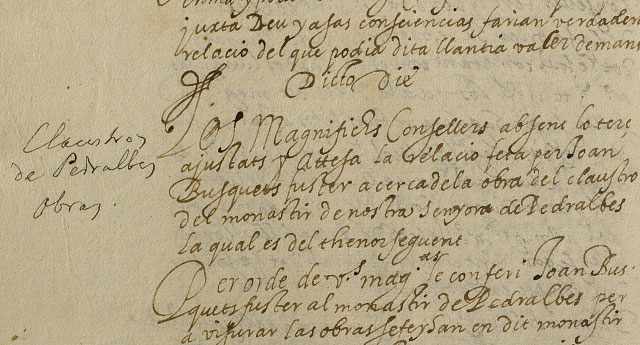 juxta Deu y a ses consciencias farian verdadera
relacio del que podia dita llantia valer deman
Dicto die
Los Magnifichs Consellers absent lo terc
ajustats y Attesa la relacio feta per Joan
Busquets fuster a cerca de la obra del claustro
del monastir de nostra Senyora de Pedralbes
la qual es del thenor seguent
Per orde de v.s mag.as se conferi Joan Bus-
quets fuster al monastir de Pedralbes per
a visurar las obras se teysan en dit monastir
Claustros
de Pedralbes
obras.